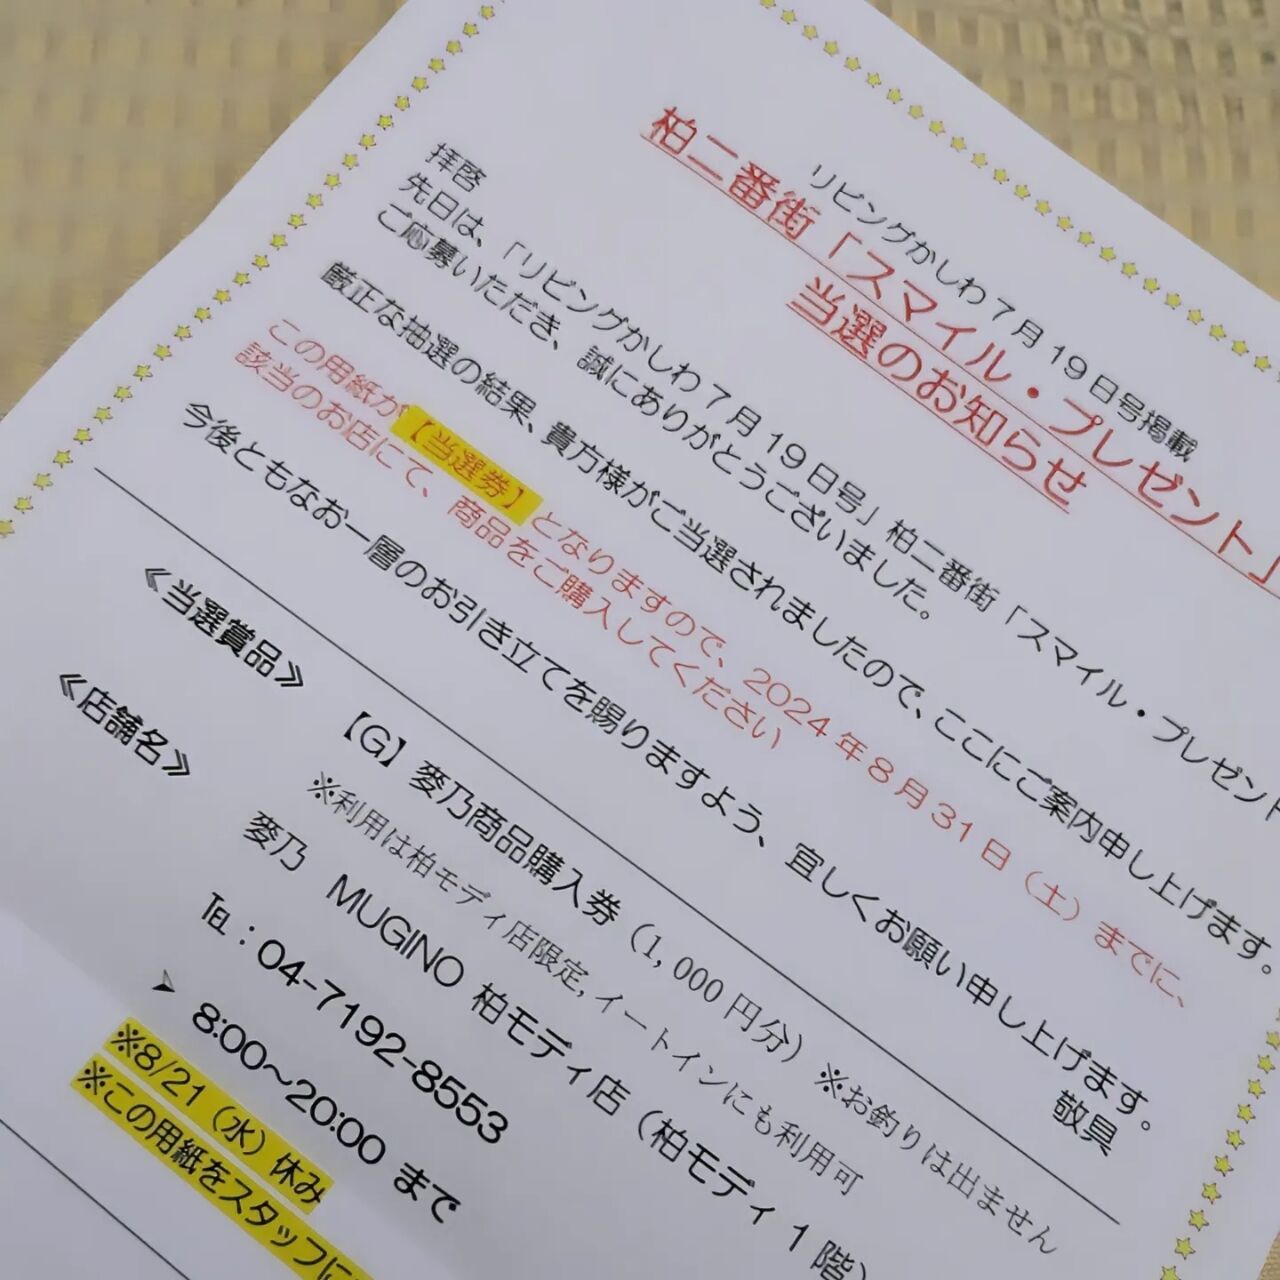 リビングかしわ7月19日号掲載
柏二番街「スマイル・プレゼント」
当選のお知らせ
拝啓
先日は、「リビングかしわ7月19日号」柏二番街「スマイル・プレゼント
ご応募いただき、誠にありがとうございました。
厳正な抽選の結果、貴方様がご当選されましたので、ここにご案内申し上げます。
この用紙が【当選券】となりますので、2024年8月31日(土)までに、
該当のお店にて、商品をご購入してください
今後ともなお一層のお引き立てを賜りますよう、宜しくお願い申し上げます。
敬具
≪当選賞品≫
【G】麥乃商品購入券(1,000円分)※お釣りは出ません
※利用は柏モディ店限定,イートインにも利用可
≪店舗名≫
麥乃 MUGINO 柏モディ店(柏モディ1階)
℡:04-7192-8553
➢ 8:00~20:00 まで
※8/21(水)休み
※この用紙をスタッフに